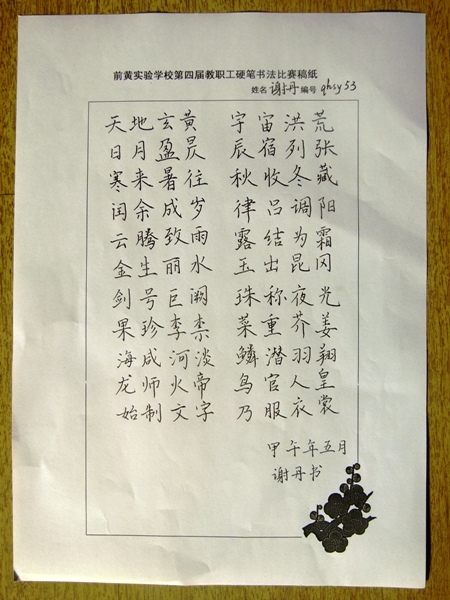 前黄实验学校第四届教职工硬笔书法比赛稿纸
姓名 谢丹 编号 qhsy53
天地玄黄 宇宙洪荒
日月盈昃 辰宿列张
寒来暑往 秋收冬藏
闰余成岁 律吕调阳
云腾致雨 露结为霜
金生丽水 玉出昆冈
剑号巨阙 珠称夜光
果珍李柰 菜重芥姜
海咸河淡 鳞潜羽翔
龙师火帝 鸟官人皇
始制文字 乃服衣裳
甲午年五月
谢丹书